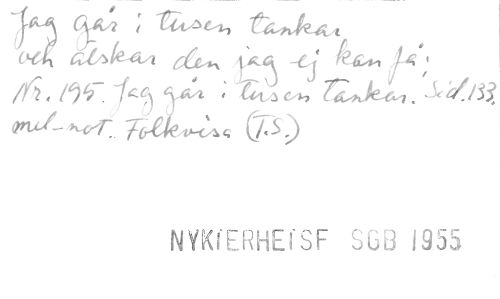 Jag går i tusen tankar
och älskar den jag ej kan få;
Nr. 195. Jag går i tusen tankar. Sid. 133.
mel-not. Folkvisa (T.S.)
NYKIERHEISF SGB 1955